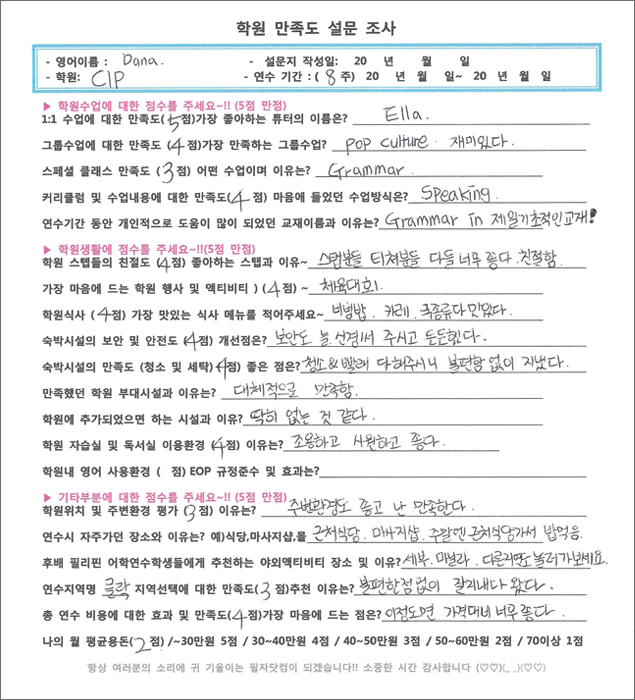 학원 만족도 설문 조사
- 영어이름 : Dana. - 설문지 작성일: 20 년 월 일
- 학원: CIP - 연수 기간 : ( 8 주) 20 년 월 일~ 20 년 월 일
▶ 학원수업에 대한 점수를 주세요~!! (5점 만점)
1:1 수업에 대한 만족도( 5 점)가장 좋아하는 튜터의 이름은? Ella.
그룹수업에 대한 만족도( 4 점)가장 만족하는 그룹수업? POP culture. 재미있다.
스페셜 클래스 만족도 ( 3 점) 어떤 수업이며 이유는? Grammar.
커리큘럼 및 수업내용에 대한 만족도( 4 점) 마음에 들었던 수업방식은? Speaking.
연수기간 동안 개인적으로 도움이 많이 되었던 교재이름과 이유는? Grammar in 제일기초적인교재!
▶ 학원생활에 점수를 주세요~!!(5점 만점)
학원 스텝들의 친절도 ( 4 점) 좋아하는 스탭과 이유~ 스탭분들 티쳐분들 다들 너무 좋다. 친절함.
가장 마음에 드는 학원 행사 및 액티비티 ) ( 4 점) ~ 체육대회.
학원식사 ( 4 점) 가장 맛있는 식사 메뉴를 적어주세요~ 비빔밥. 카레. 국종류다맛있다.
숙박시설의 보안 및 안전도 ( 4 점) 개선점은? 보안도 늘 신경써 주시고 든든했다.
숙박시설의 만족도 (청소 및 세탁) ( 4 점) 좋은 점은? 청소&빨래 다해주시니 불편함 없이 지냈다.
만족했던 학원 부대시설과 이유는? 대체적으로 만족함.
학원에 추가되었으면 하는 시설과 이유? 딱히 없는 것 같다.
학원 자습실 및 독서실 이용환경 ( 4 점) 이유는? 조용하고 시원하고 좋다.
학원내 영어 사용환경 ( 점) EOP 규정준수 및 효과는?
▶ 기타부분에 대한 점수를 주세요~!! (5점 만점)
학원위치 및 주변환경 평가 ( 3 점) 이유는? 주변환경도 좋고 난 만족한다.
연수시 자주가던 장소와 이유는? 예)식당,마사지샵,몰 근처식당. 마사지샵. 주말엔 근처식당가서 밥먹음.
후배 필리핀 어학연수학생들에게 추천하는 야외액티비티 장소 및 이유? 세부. 마닐라. 다른지역도놀러가보세요.
연수지역명 클락 지역선택에 대한 만족도( 3 점)추천 이유는? 불편한점없이 잘지내다 왔다.
총 연수 비용에 대한 효과 및 만족도( 4 점)가장 마음에 드는 점은? 이정도면 가격대비 너무 좋다.
나의 월 평균용돈( 2 점) /~30만원 5점 / 30~40만원 4점 / 40~50만원 3점 / 50~60만원 2점 / 70이상 1점
항상 여러분의 소리에 귀 기울이는 필자닷컴이 되겠습니다!! 소중한 시간 감사합니다 (♡♡)(_ _)(♡♡)